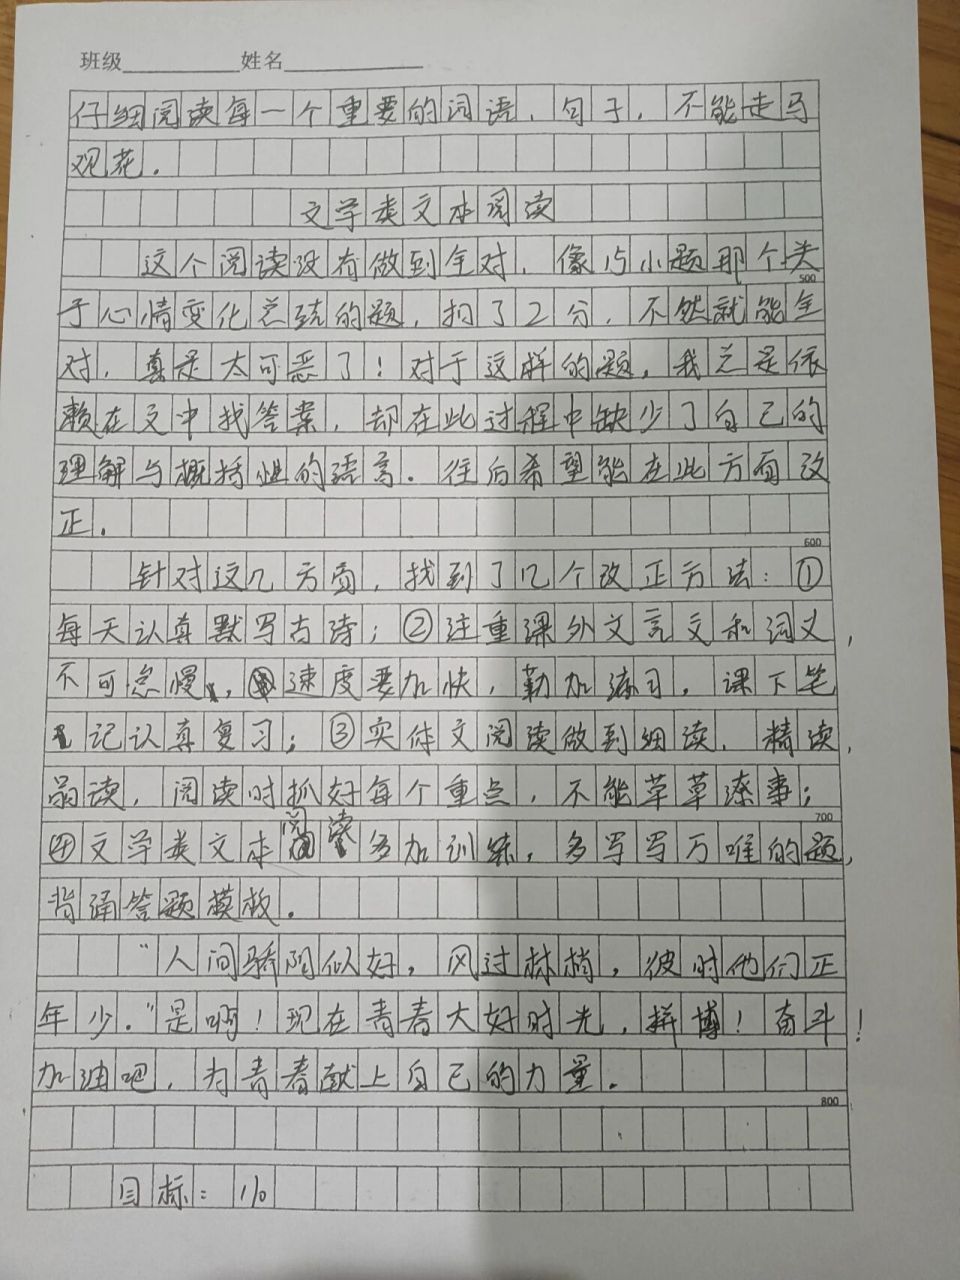 班级 姓名
仔细阅读每一个重要的词语、句子，不能走马
观花。
文学类文本阅读
这个阅读没有做到全对，像15小题那个关
500
于心情变化总结的题，扣了2分，不然就能全
对，真是太可恶了！对于这样的题，我总是依
赖在文中找答案，却在此过程中缺少了自己的
理解与概括性的语言。往后希望能在此方面改
正。
600
针对这几方面，找到了几个改正方法：①
每天认真默写古诗；②注重课外文言文和词义，
不可怠慢，速度要加快，勤加练习，课下笔
记认真复习；③实体文阅读做到细读、精读、
品读，阅读时抓好每个重点，不能草草潦事；
700
④文学类文本阅读多加训练，多写写万唯的题，
背诵答题模板。
“人间骄阳似好，风过林梢，彼时他们正
年少。”是啊！现在青春大好时光，拼搏！奋斗！
加油吧，为青春献上自己的力量。
800
目标：110